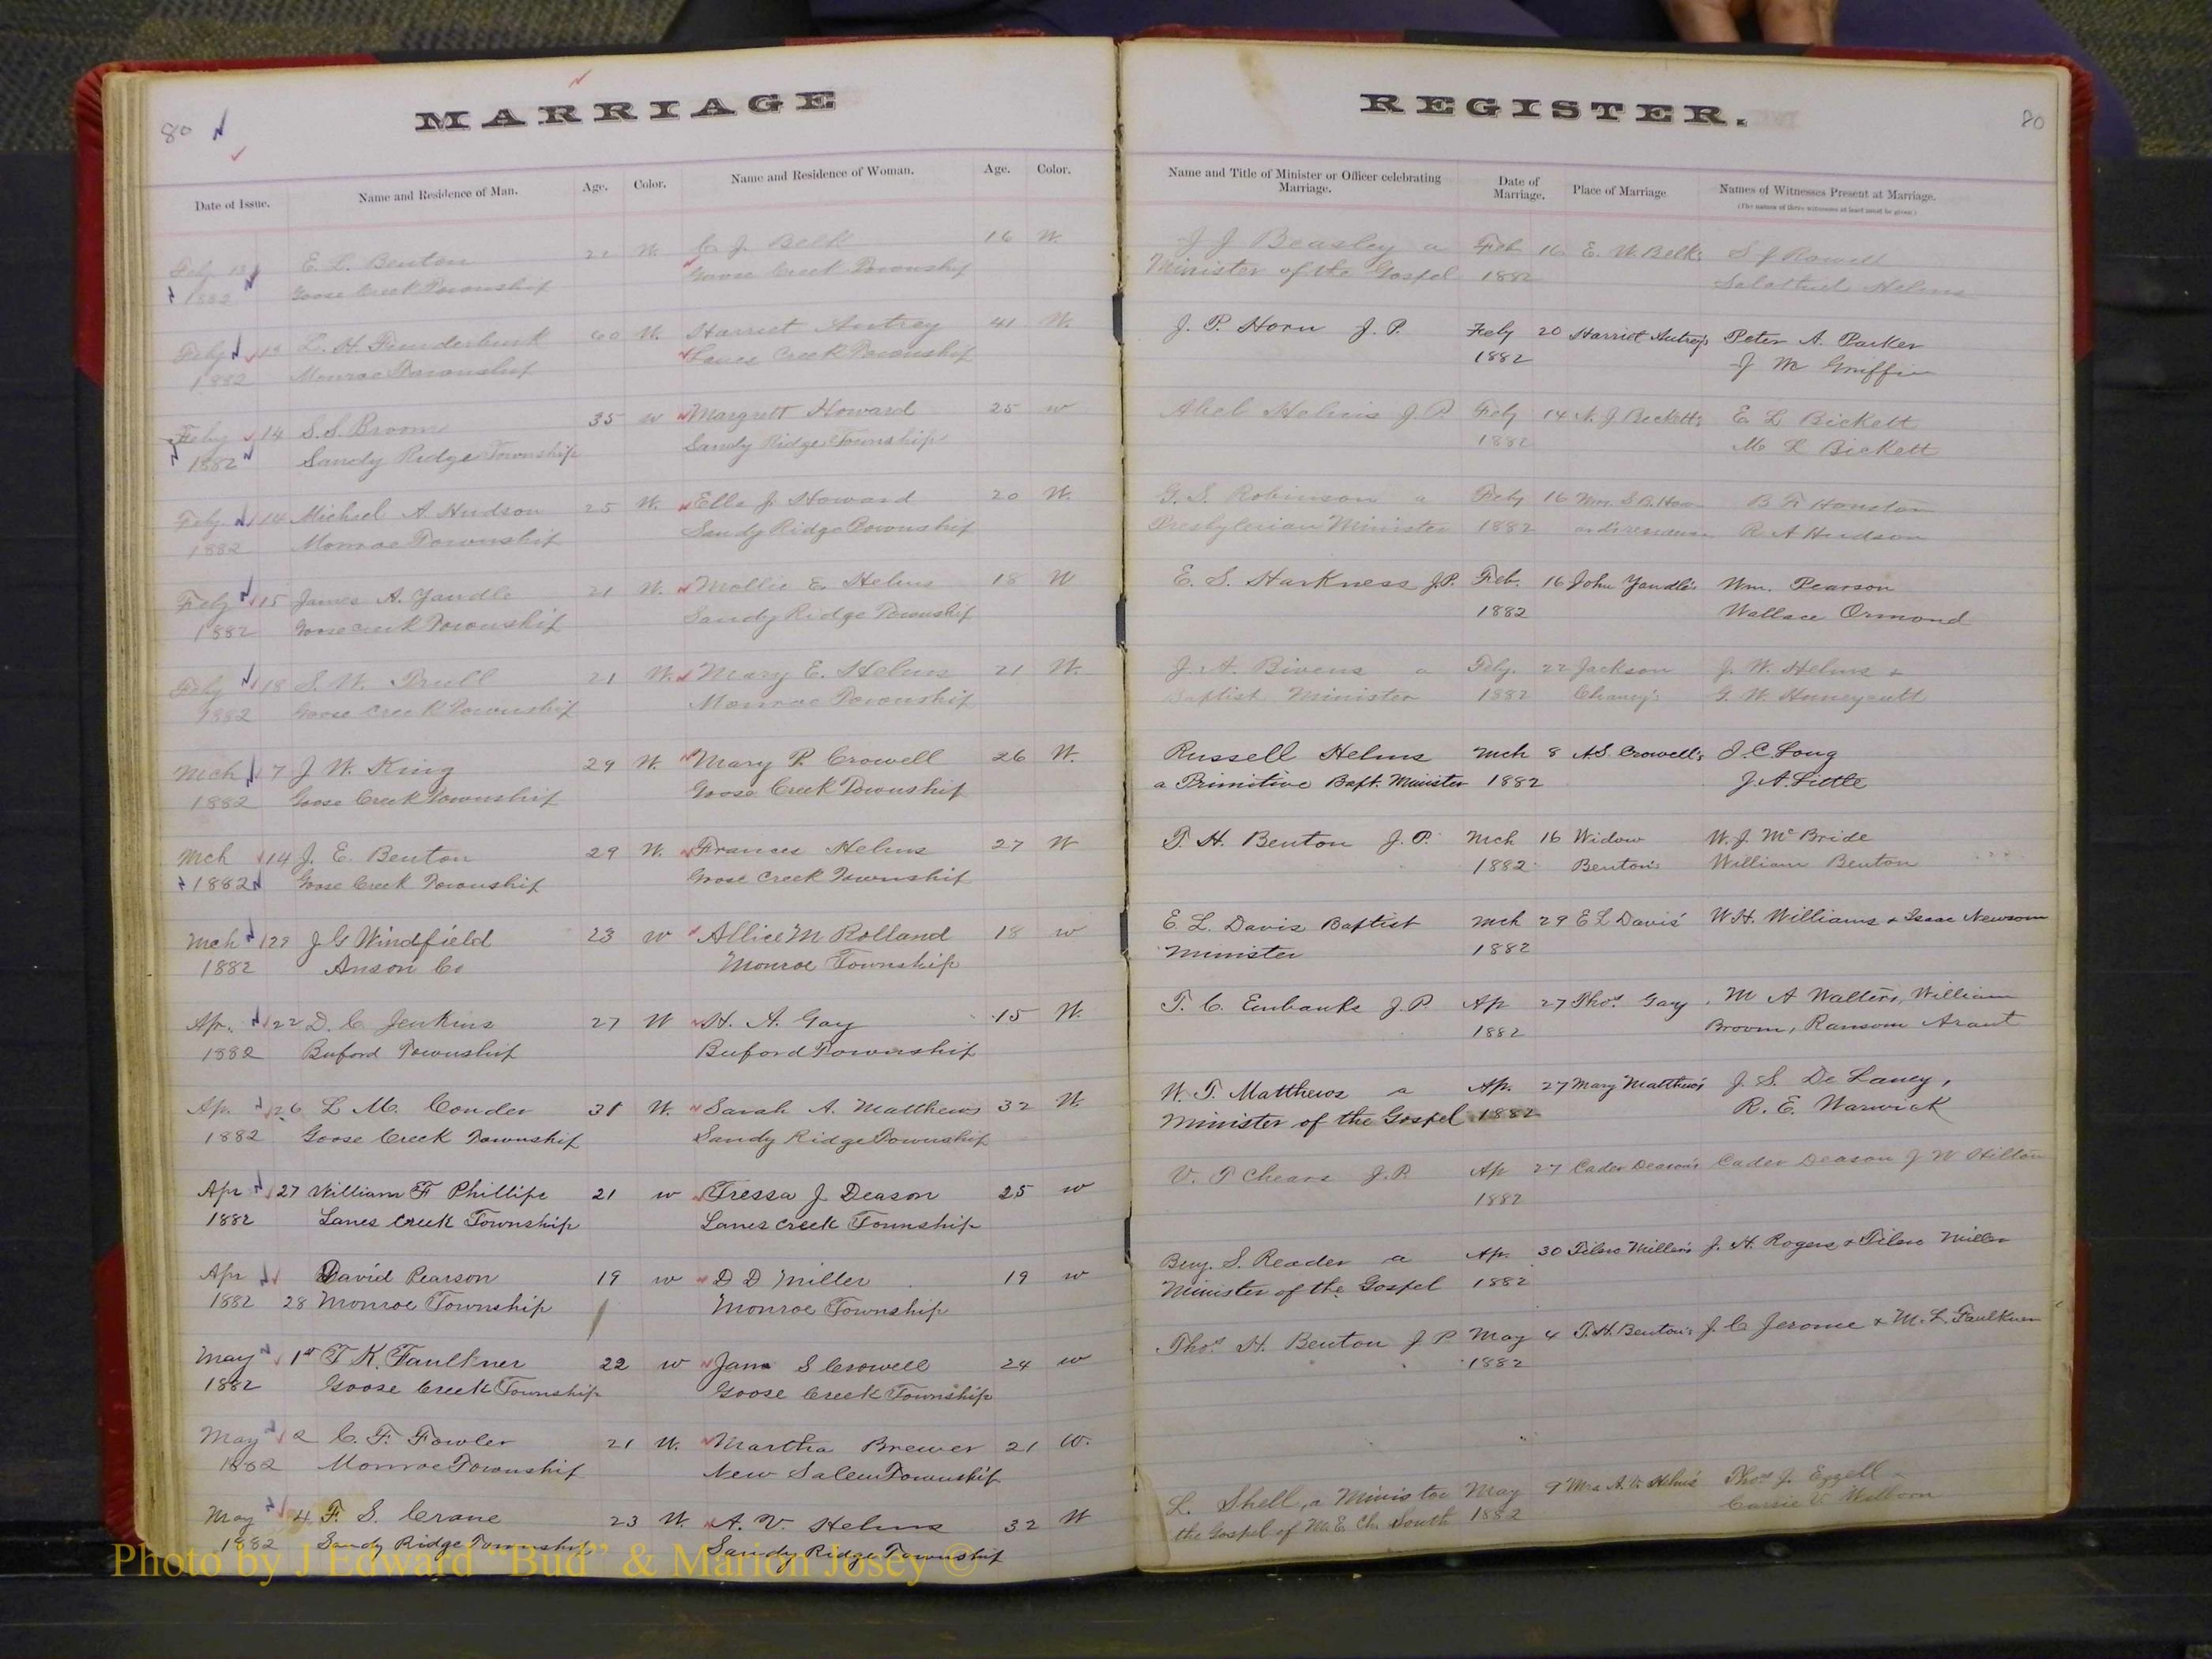 80
MARRIAGE
Date of Issue. Name and Residence of Man. Age. Color. Name and Residence of Woman. Age. Color.
Feby 13 E. L. Benton 21 W. C. J. Belk 16 W.
1882 Goose Creek Township Goose Creek Township
Feby 13 L. H. Funderburk 60 W. Harriet Autrey 41 W.
1882 Monroe Township Lanes Creek Township
Feby 14 S. S. Broom 35 w Margrett Howard 25 w
1882 Sandy Ridge Township Sandy Ridge Township
Feby 14 Michael A Hudson 25 W. Ella J. Howard 20 W.
1882 Monroe Township Sandy Ridge Township
Feby 15 James A. Yandle 21 W. Mollie E. Helms 18 W
1882 Goose Creek Township Sandy Ridge Township
Feby 18 S. W. Prull 21 W. Mary E. Helms 21 W.
1882 Goose Creek Township Monroe Township
Mch 7 J. W. King 29 W. Mary P. Crowell 26 W.
1882 Goose Creek Township Goose Creek Township
Mch 14 J. E. Benton 29 W. Frances Helms 27 W
1882 Goose Creek Township Goose Creek Township
Mch J G Windfield 23 w Allice M Rolland 18 w
1882 Anson Co Monroe Township
Apr. 22 D. C. Jenkins 27 W H. A. Gay 15 W.
1882 Buford Township Buford Township
Apr. 26 L M. Conder 31 W. Sarah A. Matthews 32 W.
1882 Goose Creek Township Sandy Ridge Township
Apr 27 William F Phillips 21 w Tressa J. Deason 25 w
1882 Lanes Creek Township Lanes Creek Township
Apr David Pearson 19 w D D Miller 19 w
1882 28 Monroe Township Monroe Township
May 1st T. K. Faulkner 22 w Jane S Crowell 24 w
1882 Goose Creek Township Goose Creek Township
May 2 C. F. Fowler 21 W. Martha Brewer 21 W.
1882 Monroe Township New Salem Township
May 4 F. S. Crane 23 W. A. V. Helms 32 W
1882 Sandy Ridge Township Sandy Ridge Township
REGISTER.
80
Name and Title of Minister or Officer celebrating Marriage. Date of Marriage. Place of Marriage Names of Witnesses Present at Marriage.
(The names of three witnesses at least must be given.)
J J Beasley a Feb 16 E. W. Belk's S J Rowell
Minister of the Gospel 1882 Helms
J. P. Horn J. P. Feby 20 Harriet Autrey's Peter A. Parker
1882 J M Griffin
Abel Helms J. P. Feby 14 E L Bickett
1882 M L Bickett
G. S. Robinson a Feby 16 Mrs. S. B. How- B F Houston
Presbyterian Minister 1882 ard's residence R A Hudson
E. S. Harkness J.P. Feb. 16 John Yandle's Wm. Pearson
1882 Wallace Ormond
J. A. Bivens a Feby. 22 Jackson J. W. Helms &
Baptist Minister 1882 Chaney's G. W. Huneycutt
Russell Helms Mch 8 A.S. Crowell's J. C. Long
a Primitive Bapt. Minister 1882 J. A. Little
T. H. Benton J. P. Mch 16 Widow W. J. McBride
1882 Benton's William Benton
E. L. Davis Baptist Mch 29 E L Davis' W. H. Williams & Isaac Newsom
Minister 1882
T. C. Eubanks J. P. Ap 27 Thos. Gay M A Walters, William
1882 Broom, Ransom Arant
W. T. Matthews a Ap. 27 Mary Matthews J. S. De Laney,
Minister of the Gospel 1882 R. E. Warwick
V. T Chears J. P. Ap 27 Cader Deason's Cader Deason J W Hilton
1882
Benj. S. Reader a Ap. 30 Tilero Miller's J. H. Rogers & Tilero Miller
Minister of the Gospel 1882
Thos. H. Benton J P. May 4 T. H. Benton's J. C Jerome & M. L. Faulkner
1882
L. Shell, a Minister May 9 Mrs A. V. Helms' Thos J. Ezzell &
the Gospel of M. E. Ch. South 1882 Carrie V. Welborn
Photo by J Edward "Bud" & Marion Josey ©